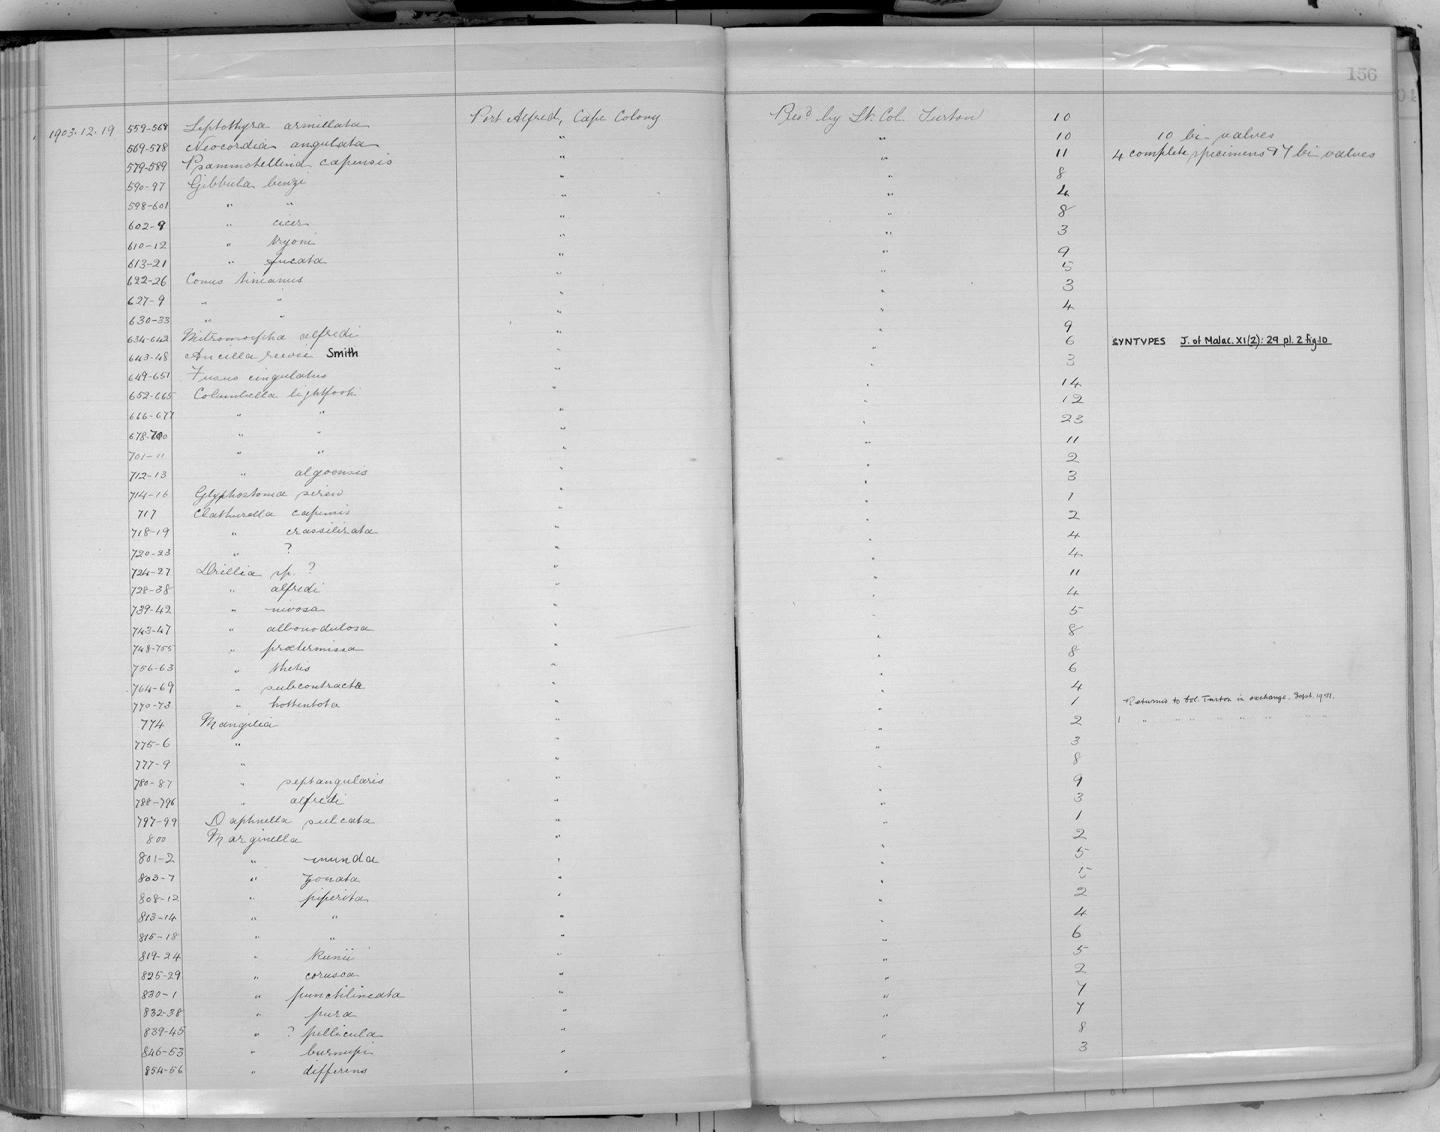 156
1903.12.19 559-568 Leptothyra armillata Port Alfred, Cape Colony Pres'd by Lt. Col. Turton 10
569-578 Neocardia angulata " " 10 10 bi-valves
579-589 Psammotellina capensis " " 11 4 complete specimens & 7 bi valves
590-97 Gibbula benzi " " 8
598-601 " " " " 4
602-9 " cicer " " 8
610-12 " tryoni " " 3
613-21 " fucata " " 9
622-26 Conus tinianus " " 5
627-9 " " " " 3
630-33 " " " " 4
634-642 Mitromorpha alfredi " " 9
643-48 Ancilla reevei Smith " " 6 SYNTYPES J. of Malac. XI(2): 29 pl. 2 fig 10
649-651 Fusus cingulatus " " 3
652-665 Columbella lightfooti " " 14
666-677 " " " " 12
678-700 " " " " 23
701-11 " " " " 11
712-13 " algoensis " " 2
714-16 Glyphostoma siren " " 3
717 Clathurella capensis " " 1
718-19 " crassilirata " " 2
720-23 " ? " " 4
724-27 Drillia sp. ? " " 4
728-38 " alfredi " " 11
739-42 " nivosa " " 4
743-47 " albonodulosa " " 5
748-755 " praetermissa " " 8
756-63 " thetis " " 8
764-69 " subcontracta " " 6
770-73 " hottentota " " 4
774 Mangilia " " 1 Returned to Col. Turton in exchange. Sept. 1931.
775-6 " " " 2 1 " " " " " " "
777-9 " " " 3
780-87 " septangularis " " 8
788-796 " alfredi " " 9
797-99 Daphnella sulcata " " 3
800 Marginella " " 1
801-2 " munda " " 2
803-7 " zonata " " 5
808-12 " piperita " " 5
813-14 " " " " 2
815-18 " " " " 4
819-24 " " " 6
825-29 " corusca " " 5
830-1 " punctilineata " " 2
832-38 " pura " " 7
839-45 " ? pellicula " " 7
846-53 " burnupi " " 8
854-56 " differens " " 3